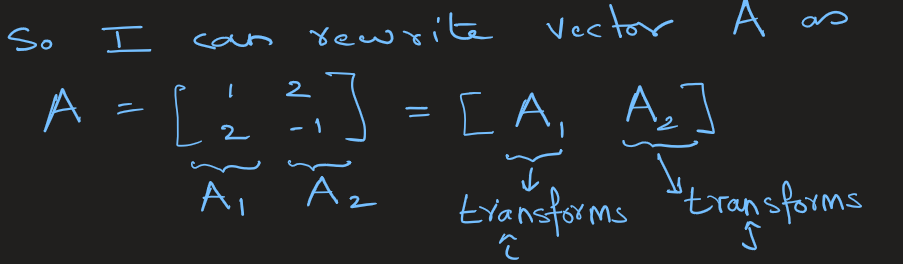 So I can rewrite vector A as
A = [ 1 2 ] = [ A₁ A₂ ]
2 -1
A₁ A₂
transforms transforms
î ĵ